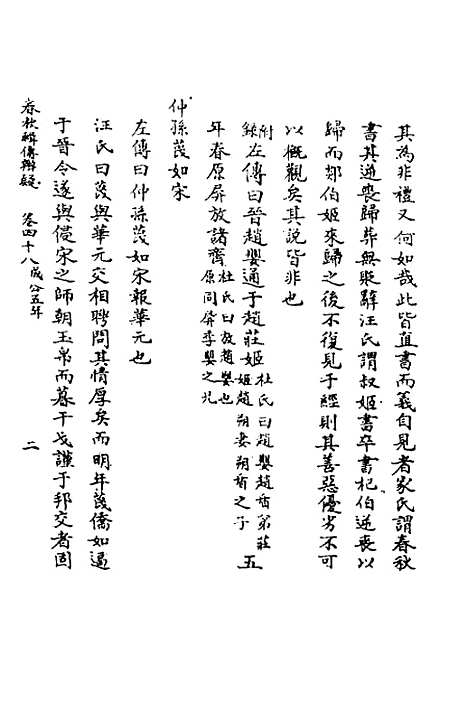 其為非禮又何如哉此皆直書而義自見者家氏謂春秋
書其逆喪歸葬無貶辭汪氏謂叔姬書卒書杞伯逆喪以
歸而郯伯姬來歸之後不復見于經則其善惡優劣不可
以概觀矣其說皆非也
附錄左傳曰晉趙嬰通于趙莊姬杜氏曰趙嬰趙盾弟莊姬趙朔妻朔盾之子五
年春原屏放諸齊杜氏曰放趙嬰也原同屏季嬰之兄
仲孫蔑如宋
左傳曰仲孫蔑如宋報華元也
汪氏曰蔑與華元交相聘問其情厚矣而明年蔑僑如逼
于晉令遂與侵宋之師朝玉帛而暮干戈謹于邦交者固
春秋輯傳辨疑 卷四十八成公五年 二